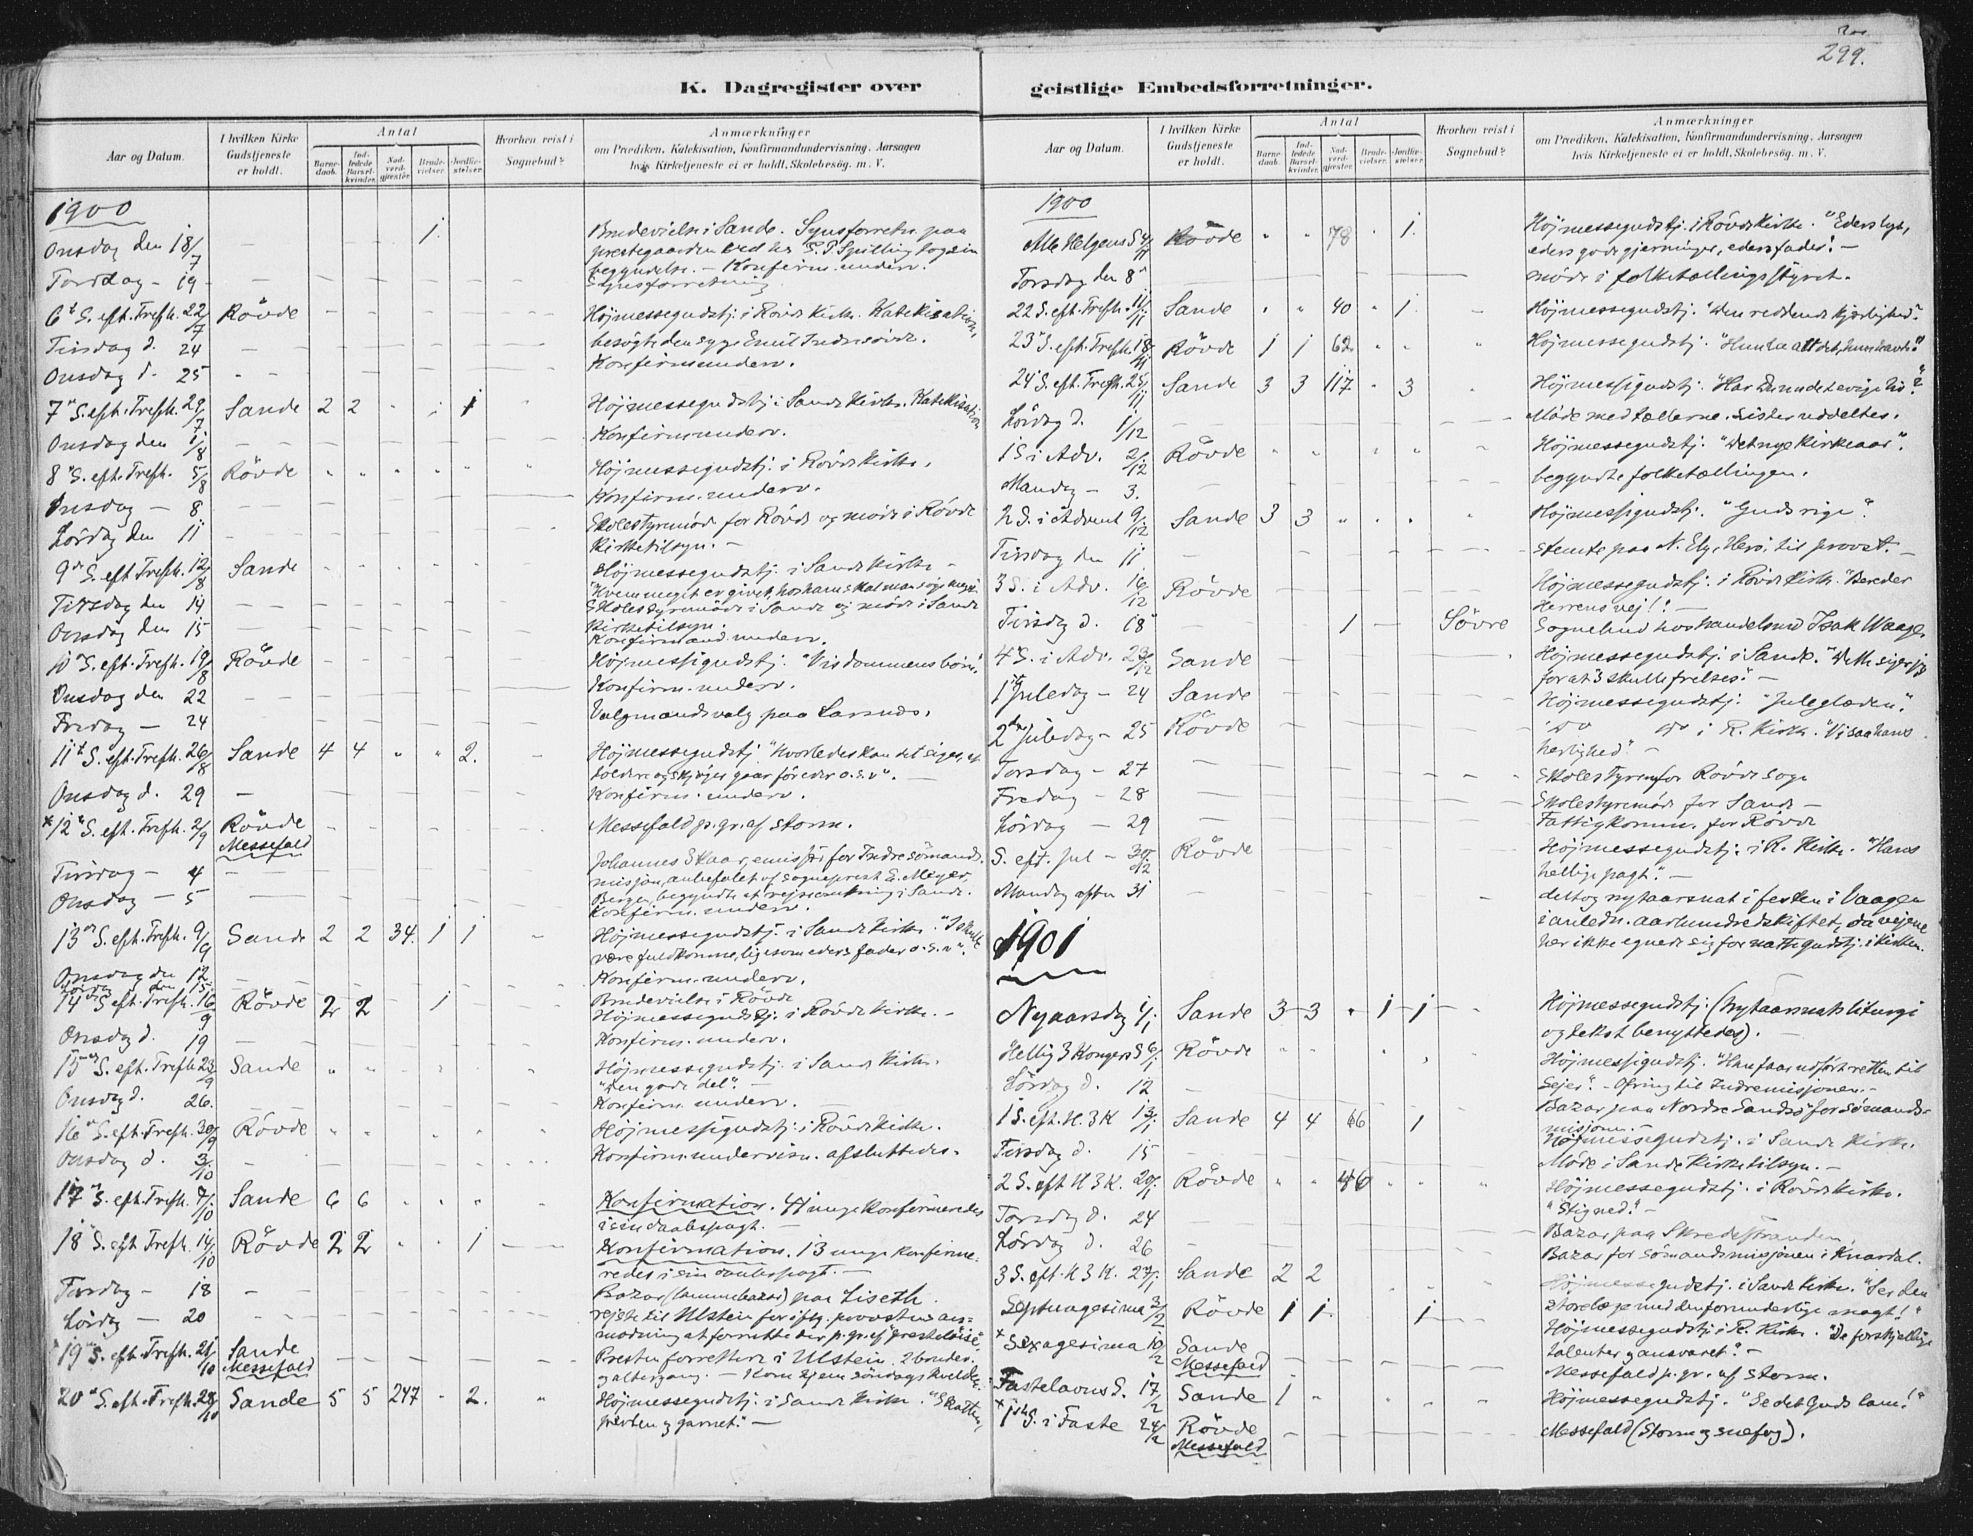 299.
K. Dagregister over
geistlige Embedsforretninger.
Aar og Datum.
I hvilken Kirke Gudstjeneste er holdt.
Antal
Barne-daab.
Ind-ledede Barsel-kvinder.
Nad-verd-gjester.
Brude-vielser.
Jordfæ-stelser.
Hvorhen reist i Sognebud?
Anmærkninger
om Prædiken, Katekisation, Konfirmandundervisning, Aarsagen
hvis Kirketjeneste ei er holdt, Skolebesög. m. V.
1900
Onsdag den 18/7 1. Brudevielse i Sande. Synsforretn. paa
prestegaarden ved hr.
begyndelse. – Konfirm. underv.
Torsdag – 19 Synsforretning
6te S. eft. Trefh. 22/7 Rövde Höjmessegudstj. i Rövde Kirke. Katekisation,
Tirsdag d. 24 besögte den syge
Onsdag d. 25 Konfirm. underv.
7" S. eft. Trefh. 29/7 Sande 2 2 1 Höjmessegudstj. i Sande Kirke. Katekisation
Onsdag den 1/8 Konfirm. underv.
8" S. eft. Trefh. 5/8 Rövde Höjmessegudstj. i Rövde Kirke.
Onsdag – 8 Konfirm. underv.
Lördag den 11 Skolestyremöde for Rövde og möde i Rövde
Kirketilsyn. –
9de S. eft Trefh. 12/8 Sande Höjmessegudstj. i Sande Kirke –
"Hvem meget er givet, hos ham skal man söge meget."
Tirsdag den 14 Skolestyremöde i Sande og möde i Sande
Kirketilsyn.
Onsdag den 15 Konfirmand. underv.
10" S. eft. Trefh. 19/8 Rövde Höjmessegudstj. "Visdommens börn".
Onsdag den 22 Konfirm. underv.
Fredag – 24 Valgmandsvalg paa Larsnes.
11te S. eft. Trefh. 26/8 Sande 4 4 " " 2. Höjmessegudstj. "Hvorledes kan det siges, at
toldere og skjöger gaar för eder o.s.v". –
Onsdag d. 29 Konfirm. underv.
×12" S. eft. Trefh. 2/9 Rövde Messefald p. gr. af storm.
Messefald
Tirsdag – 4 Johannes Skaar, emissær for Indre sömands-
misjon, anbefalet af sogneprest E. Meyer,
Bergen, begyndte at rejse omkring i Sande.
Onsdag – 5 Konfirm. underv.
13de S. eft. Trefh. 9/9 Sande 2 2 34. 1 1 Höjmessegudstj. i Sande Kirke. "I skulle
være fuldkomne, ligesom eders fader o.s.v".
Onsdag den 12 Konfirm. underv.
Lördag den 15. Brudevielse i Rövde
14de S. eft. Trefh. 16/9 Rövde 2 2 1 Höjmessegudstj. i Rövde Kirke. –
Onsdag d. 19 Konfirm. underv.
15de S. eft. Trefh. 23/9 Sande Höjmessegudstj. i Sande Kirke.
"Den gode del". –
Onsdag d. 26. Konfirm. underv. –
16" S. eft. Trefh. 30/9 Rövde Höjmessegudstj. i Rövde Kirke.
Onsdag d. 3/10 Konfirm. undervisn. afsluttedes.
17" S. eft. Trefh. 7/10 Sande 6 6 Konfirmation. 41 unge konfirmeredes
i sin daabspagt. –
18" S. eft Trefh. 14/10 Rövde 2 2 1 Konfirmation. 13 unge konfirme-
redes i sin daabspagt. –
Torsdag – 18 Bazar paa Liseth
Lördag – 20 rejste til Ulstein for iflg. provstens an-
modning at forrette der p. gr. af "presteløished".
×19" S. eft. Trefh. 21/10 Sande Presten forrettede i Ulstein. 2 brudev.
Messefald og altergang. – Kom hjem söndagskvelden.
20" S. eft. Trefh. 28/10 Sande 5 5 247 " 2. Höjmessegudstj. i Sande Kirke. "Skatten,
perlen og garnet". –
Aar og Datum.
I hvilken Kirke Gudstjeneste er holdt.
Antal
Barne-daab.
Ind-ledede Barsel-kvinder.
Nad-verd-gjester.
Brude-vielser.
Jordfæ-stelser.
Hvorhen reist i Sognebud?
Anmærkninger
om Prædiken, Katekisation, Konfirmandundervisning, Aarsagen
hvis Kirketjeneste ei er holdt, Skolebesög. m. V.
1900
Alle Helgens S 4/11 Rövde " " 78 " 1. Höjmessegudstj. i Rövde Kirke. "Eders lys,
eders gode gjerninger, eders fader". –
Torsdag den 8" möde i folketællingsstyret.
22 S. eft. Trefh. 11/11 Sande " " 40 " 1. Höjmessegudstj. "Den reddende kjærlighed".
23" S. eft. Trefh. 18/11 Rövde 1 1 62. Höjmessegudstj. "Hun la alt det, hun havde".
24" S. eft. Trefh. 25/11 Sande 3 3 117 " 3 Höjmessegudstj. "Har Du nu det evige liv"?
Lördag d. 1/12 Möde med tællerne. Lister uddeltes.
1 S. i Adv. 2/12 Rövde Höjmessegudstj. "Det nye kirkeaar".
Mandag – 3. begyndte folketællingen.
2 S. i Advent 9/12 Sande 3 3 Höjmessegudstj. "Guds rige".
Tirsdag den 11 stemte paa N. Ely, Herö, til provst. –
3 S. i Adv. 16/12 Rövde Höjmessegudstj. i Rövde Kirke. "Bereder
Herrens vej"! –
Tirsdag d. 18" 1 Sövre Sognebud hos handelsmd Isak Waage.
4" S. i Adv. 23/12 Sande Höjmessegudstj. i Sande. "Dette siger jeg
for at I skulle frelses". –
1ste Juledag – 24 Sande Höjmessegudstj. "Juleglæden".
2den Juledag – 25 Rövde do do i R. Kirke. "Vi saa hans
herlighed". –
Torsdag – 27 Skolestyrem for Rövde sogn
Fredag – 28 Skolestyremöde for Sande –
Lördag – 29 Fattigkomm. for Rövde
S. eft. Jul – 30/12 Rövde Höjmessegudstj. i R. Kirke. "Hans
hellige pagt". –
Mandag aften 31 deltog nytaarsnat i festen i Vaagen
i anledn. aarhundredskiftet, da vejene
her ikke egnede sig for natte gudstj. i kirken.
1901
Nyaarsdag 1/1 Sande 3 3 " 1 1 Höjmessegudstj. (Nytaarsnatsliturgi
og tekst benyttedes).
Hellig 3 Konger S 6/1 Rövde Höjmessegudstj. "Han faar udfört retten til
sejer". – Ofring til Indremisjonen. –
Lördag d. 12 Bazar paa Nordre Sandsö for sömands-
misjonen. –
1 S. eft. H. 3 K 13/1 Sande 4 4 66 1 Höjmessegudstj. i Sande Kirke.
Tirsdag d. 15 Möde i Sande Kirketilsyn. –
2 S. eft H 3 K. 20/1 Rövde " " 46 Höjmessegudstj. i Rövde Kirke.
"Stig ned". –
Torsdag d. 24 Bazar paa Skredestranden.
Lördag d. 26 Bazar for sömandsmisjonen i Knardal.
3 S. eft. H 3 K. 27/1 Sande 2 2 Höjmessegudstj. i Sande Kirke. "Se den
store læge med den forunderlige magt!"
Septuagesima 3/2 Rövde 1 1 1 Höjmessegudstj. i R. Kirke. "De forskjellige
talenter og ansvaret". –
×Sexagesima 10/2 Sande Messefald p. gr. af storm.
Messefald
Fastelavns S. 17/2 Sande 1 Höjmessegudstj. "Se det Guds lam!"
×1ste S. i Faste 24/2 Rövde Messefald (Storm og snefog).
Messefald